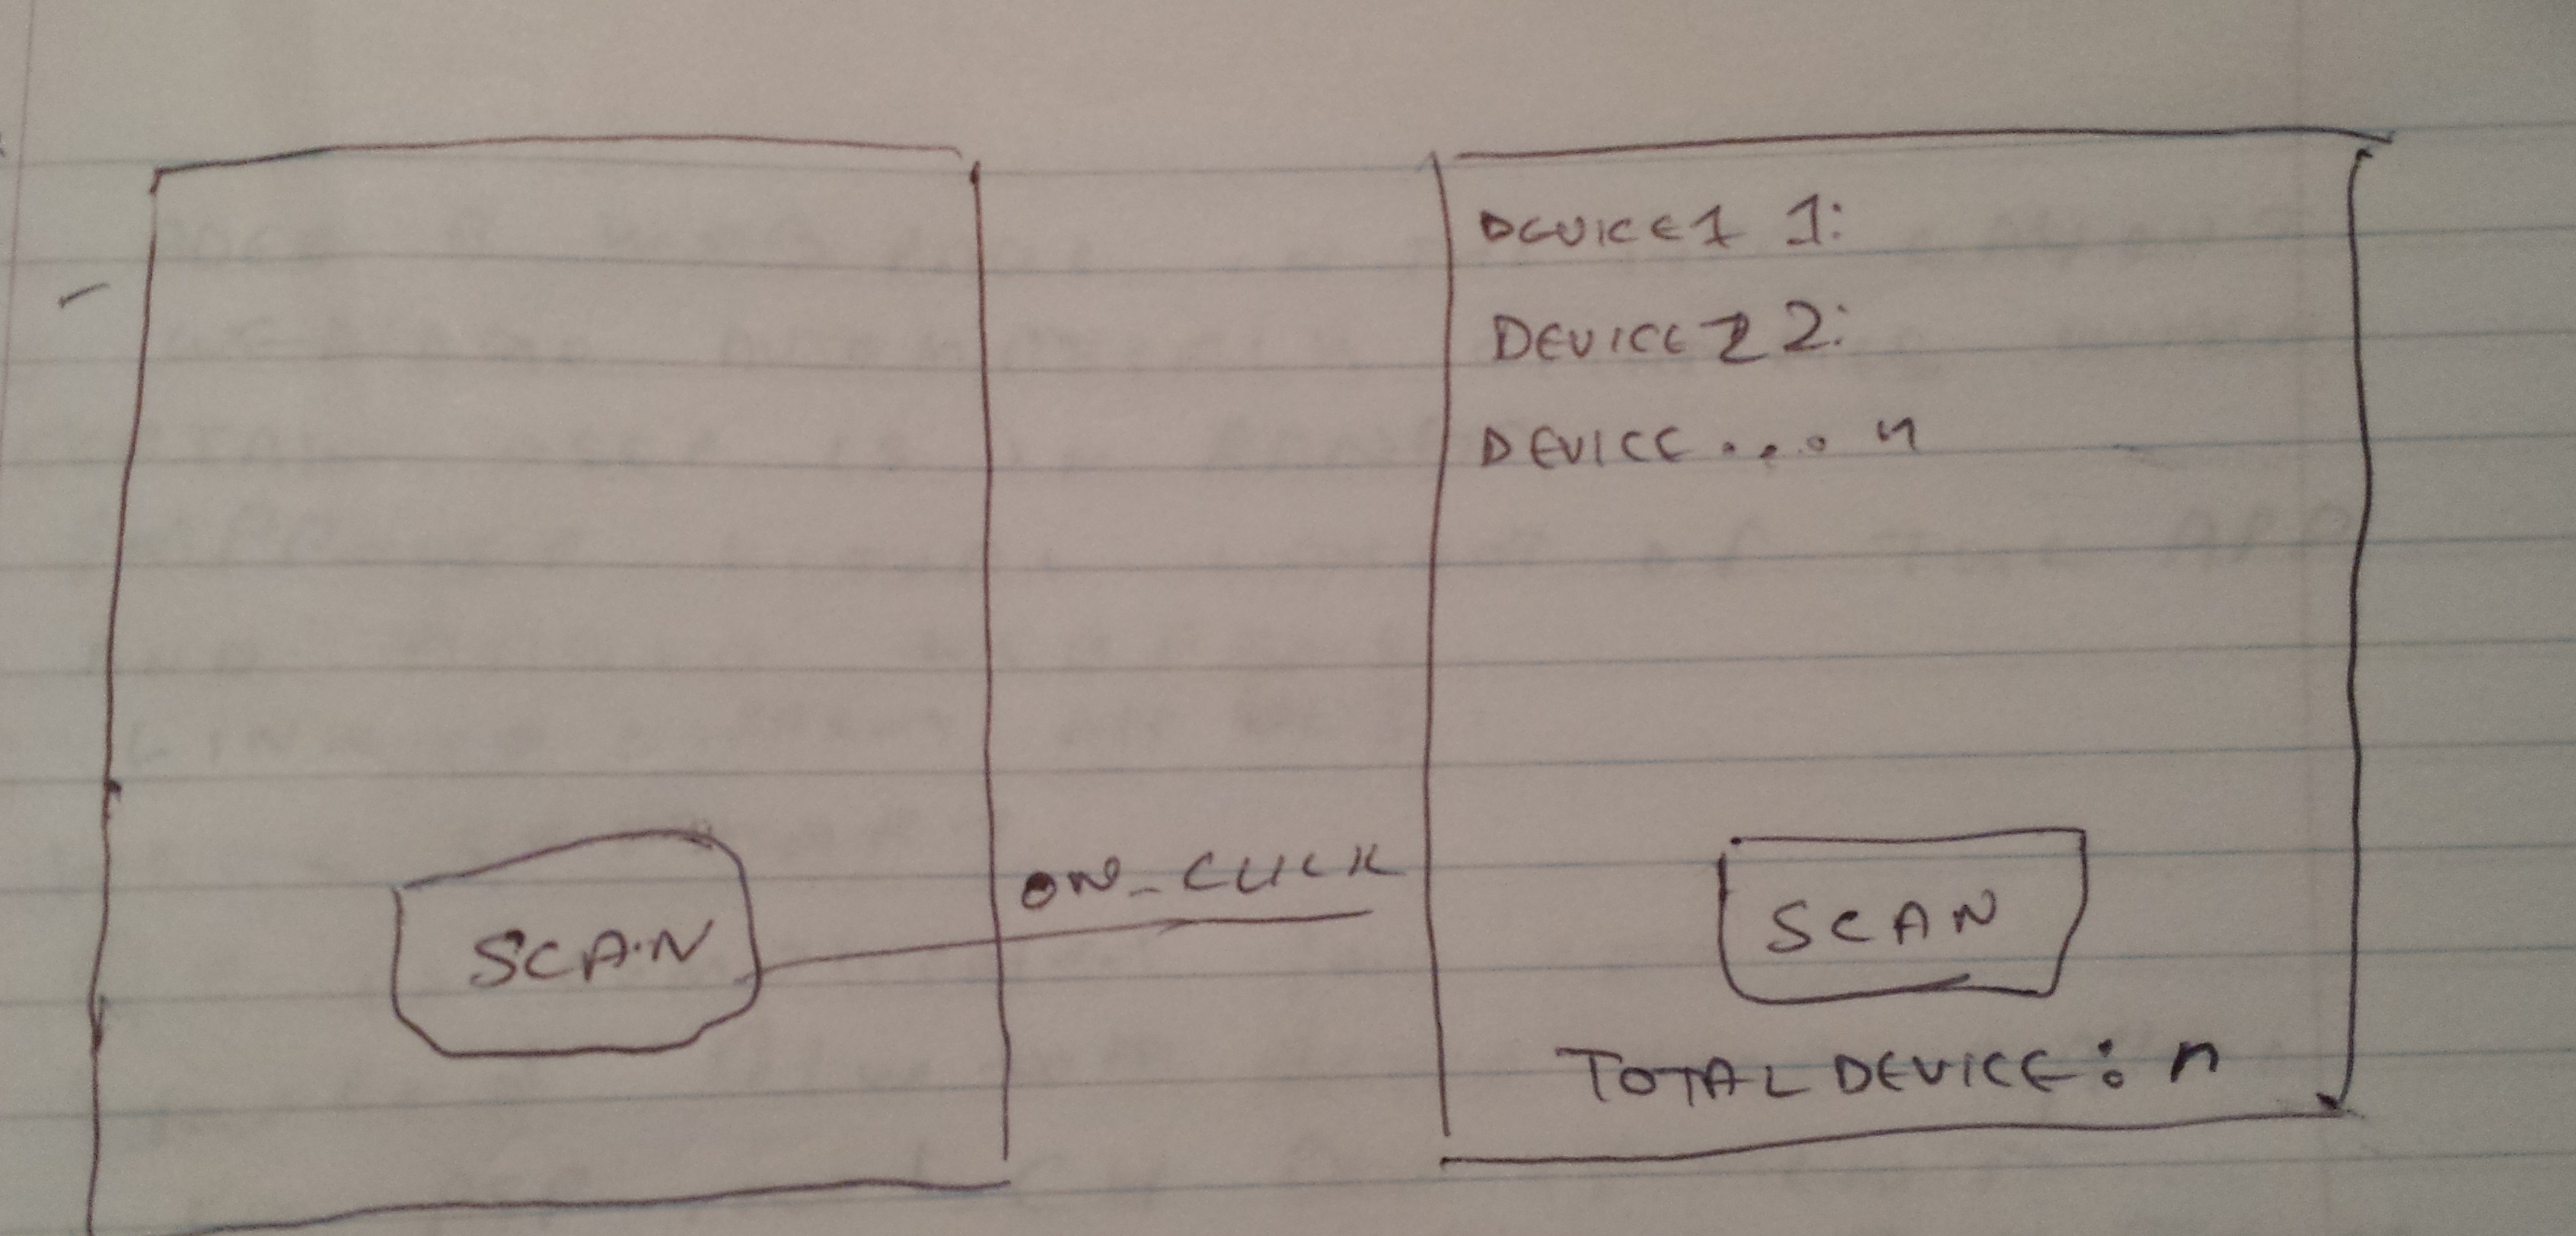 SCAN
ON_CLICK
DEVICE1 1:
DEVICE2 2:
DEVICE... n
SCAN
TOTAL DEVICE: n